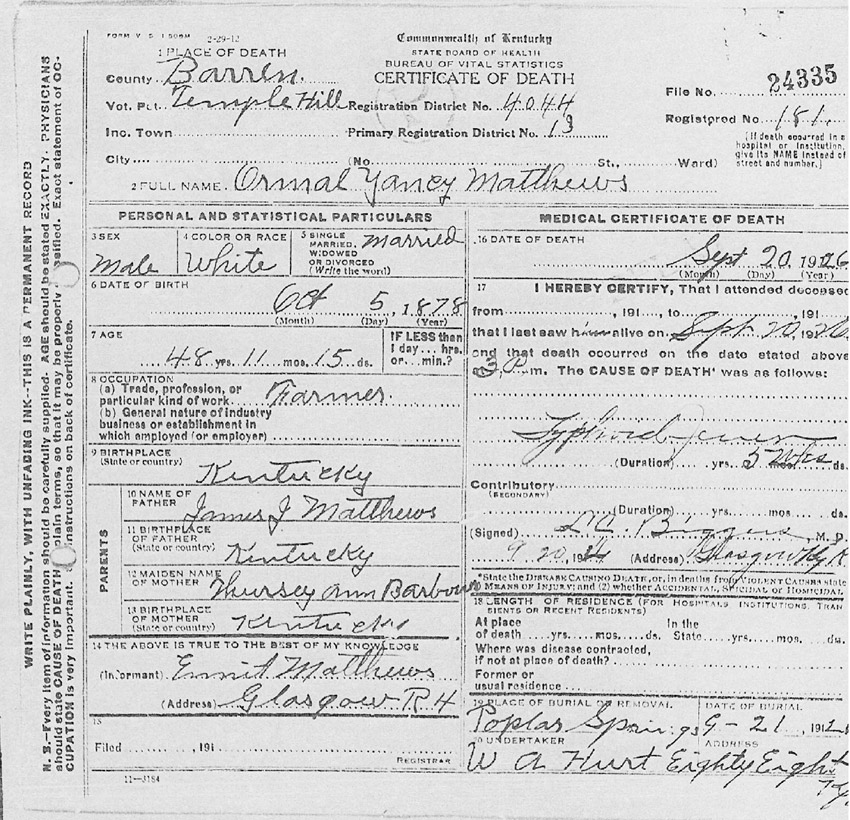 FORM V. S. 1 50M 2-29-12
Commonwealth of Kentucky
STATE BOARD OF HEALTH
BUREAU OF VITAL STATISTICS
CERTIFICATE OF DEATH
1 PLACE OF DEATH
County Barren
Vot. Pct. Temple Hill Registration District No. 4044
Inc. Town Primary Registration District No. 13
City (No. St., Ward)
File No. 24335
Registered No. 181
(If death occurred in a
hospital or institution,
give its NAME instead of
street and number.)
2 FULL NAME Ormal Yancy Matthews
PERSONAL AND STATISTICAL PARTICULARS
3 SEX
Male
4 COLOR OR RACE
White
5 SINGLE
MARRIED,
WIDOWED
OR DIVORCED
(Write the word)
married
6 DATE OF BIRTH
Oct 5, 1878
(Month) (Day) (Year)
7 AGE
48 yrs. 11 mos. 15 ds.
IF LESS than
1 day... hrs.
or... min.?
8 OCCUPATION
(a) Trade, profession, or
particular kind of work Farmer
(b) General nature of industry
business or establishment in
which employed (or employer)
9 BIRTHPLACE
(State or country)
Kentucky
PARENTS
10 NAME OF
FATHER
James J Matthews
11 BIRTHPLACE
OF FATHER
(State or country)
Kentucky
12 MAIDEN NAME
OF MOTHER
Thursey Ann Barbour
13 BIRTHPLACE
OF MOTHER
(State or country)
Kentucky
14 THE ABOVE IS TRUE TO THE BEST OF MY KNOWLEDGE
(Informant) Emit Matthews
(Address) Glasgow R 4
15
Filed , 191
REGISTRAR
11-3184
MEDICAL CERTIFICATE OF DEATH
16 DATE OF DEATH
Sept 20, 1926
(Month) (Day) (Year)
17 I HEREBY CERTIFY, That I attended deceased
from , 191 , to , 191
that I last saw him alive on Sept 20, 1926
and that death occurred on the date stated above
at 3 P. m. The CAUSE OF DEATH* was as follows:
Typhoid Fever
(Duration) yrs. 5 wks ds.
Contributory
(SECONDARY)
(Duration) yrs. mos. ds.
(Signed) Biggers, M. D.
9 20, (Address) Glasgow Ky R
*State the DISEASE CAUSING DEATH, or, in deaths from VIOLENT CAUSES state
MEANS OF INJURY; and (2) whether ACCIDENTAL, SUICIDAL or HOMICIDAL.
18 LENGTH OF RESIDENCE (FOR HOSPITALS INSTITUTIONS, TRAN
SIENTS OR RECENT RESIDENTS)
At place In the
of death yrs. mos. ds. State yrs. mos. ds.
Where was disease contracted,
if not at place of death?
Former or
usual residence
19 PLACE OF BURIAL OR REMOVAL
Poplar Springs
DATE OF BURIAL
9-21, 191
20 UNDERTAKER
W A Hurt
ADDRESS
Eighty Eight
Ky.
WRITE PLAINLY, WITH UNFADING INK--THIS IS A PERMANENT RECORD
N. B.--Every item of information should be carefully supplied. AGE should be stated EXACTLY. PHYSICIANS
should state CAUSE OF DEATH plain terms, so that it may be properly sified. Exact statement of OC-
CUPATION is very important. instructions on back of certificate.